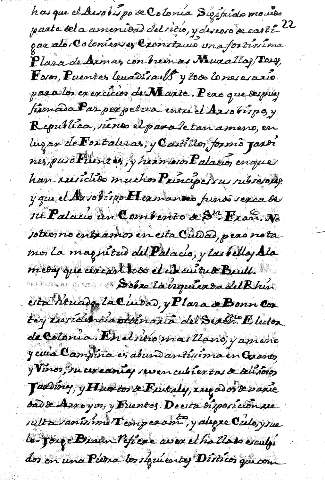 22
has que el Arsobispo de Colonia Sigifrido movido
parte de la amenidad del sitio, y deseoso de casti-
gar a los Colonienses construió una fortissima
Plaza de Armas con buenas Murallas, Torres,
Fosos, Puentes levadisas y todo lo necesario
para los exercicios de Marte. Pero que despues
firmada Paz perpetua entre el Arsobispo, y
Republica, siendo el parage tan ameno, en
lugar de Fortalezas, y Castillos, formó Jardi-
nes, puso Fuentes, y hermoso Palacio, en que
han residido muchos Principes sus subcesores
y que el Arsobispo Hermanno fundó cerca de
su Palacio un Combento de Sn. Franco. No-
sotros no entramos en esta Ciudad, pero nota
mos la magnitud del Palacio, y las bellas Ala-
medas que circundo el de Brull.
Sobre la izquierda del Rhin
està situada la Ciudad, y Plaza de Bonn Cor-
te y residencia ordinaria del Sermo. Elector
de Colonia. En el sitio mas llano, y ameno
y cuia Campiña es abundantissima en Granos,
y Vinos, sus cercanias se ven cubiertas de deliciosos
Jardines, y Huertos de Frutales, regados de varie
dad de Arroyos, y Fuentes. De esta disposicion re-
sulta sanissimo Temperamto. y alegre Cielo, y sue
lo. Jorge Braun refiere aver el hallado esculpi
dos en una Piedra los siguientes Disticos que com-